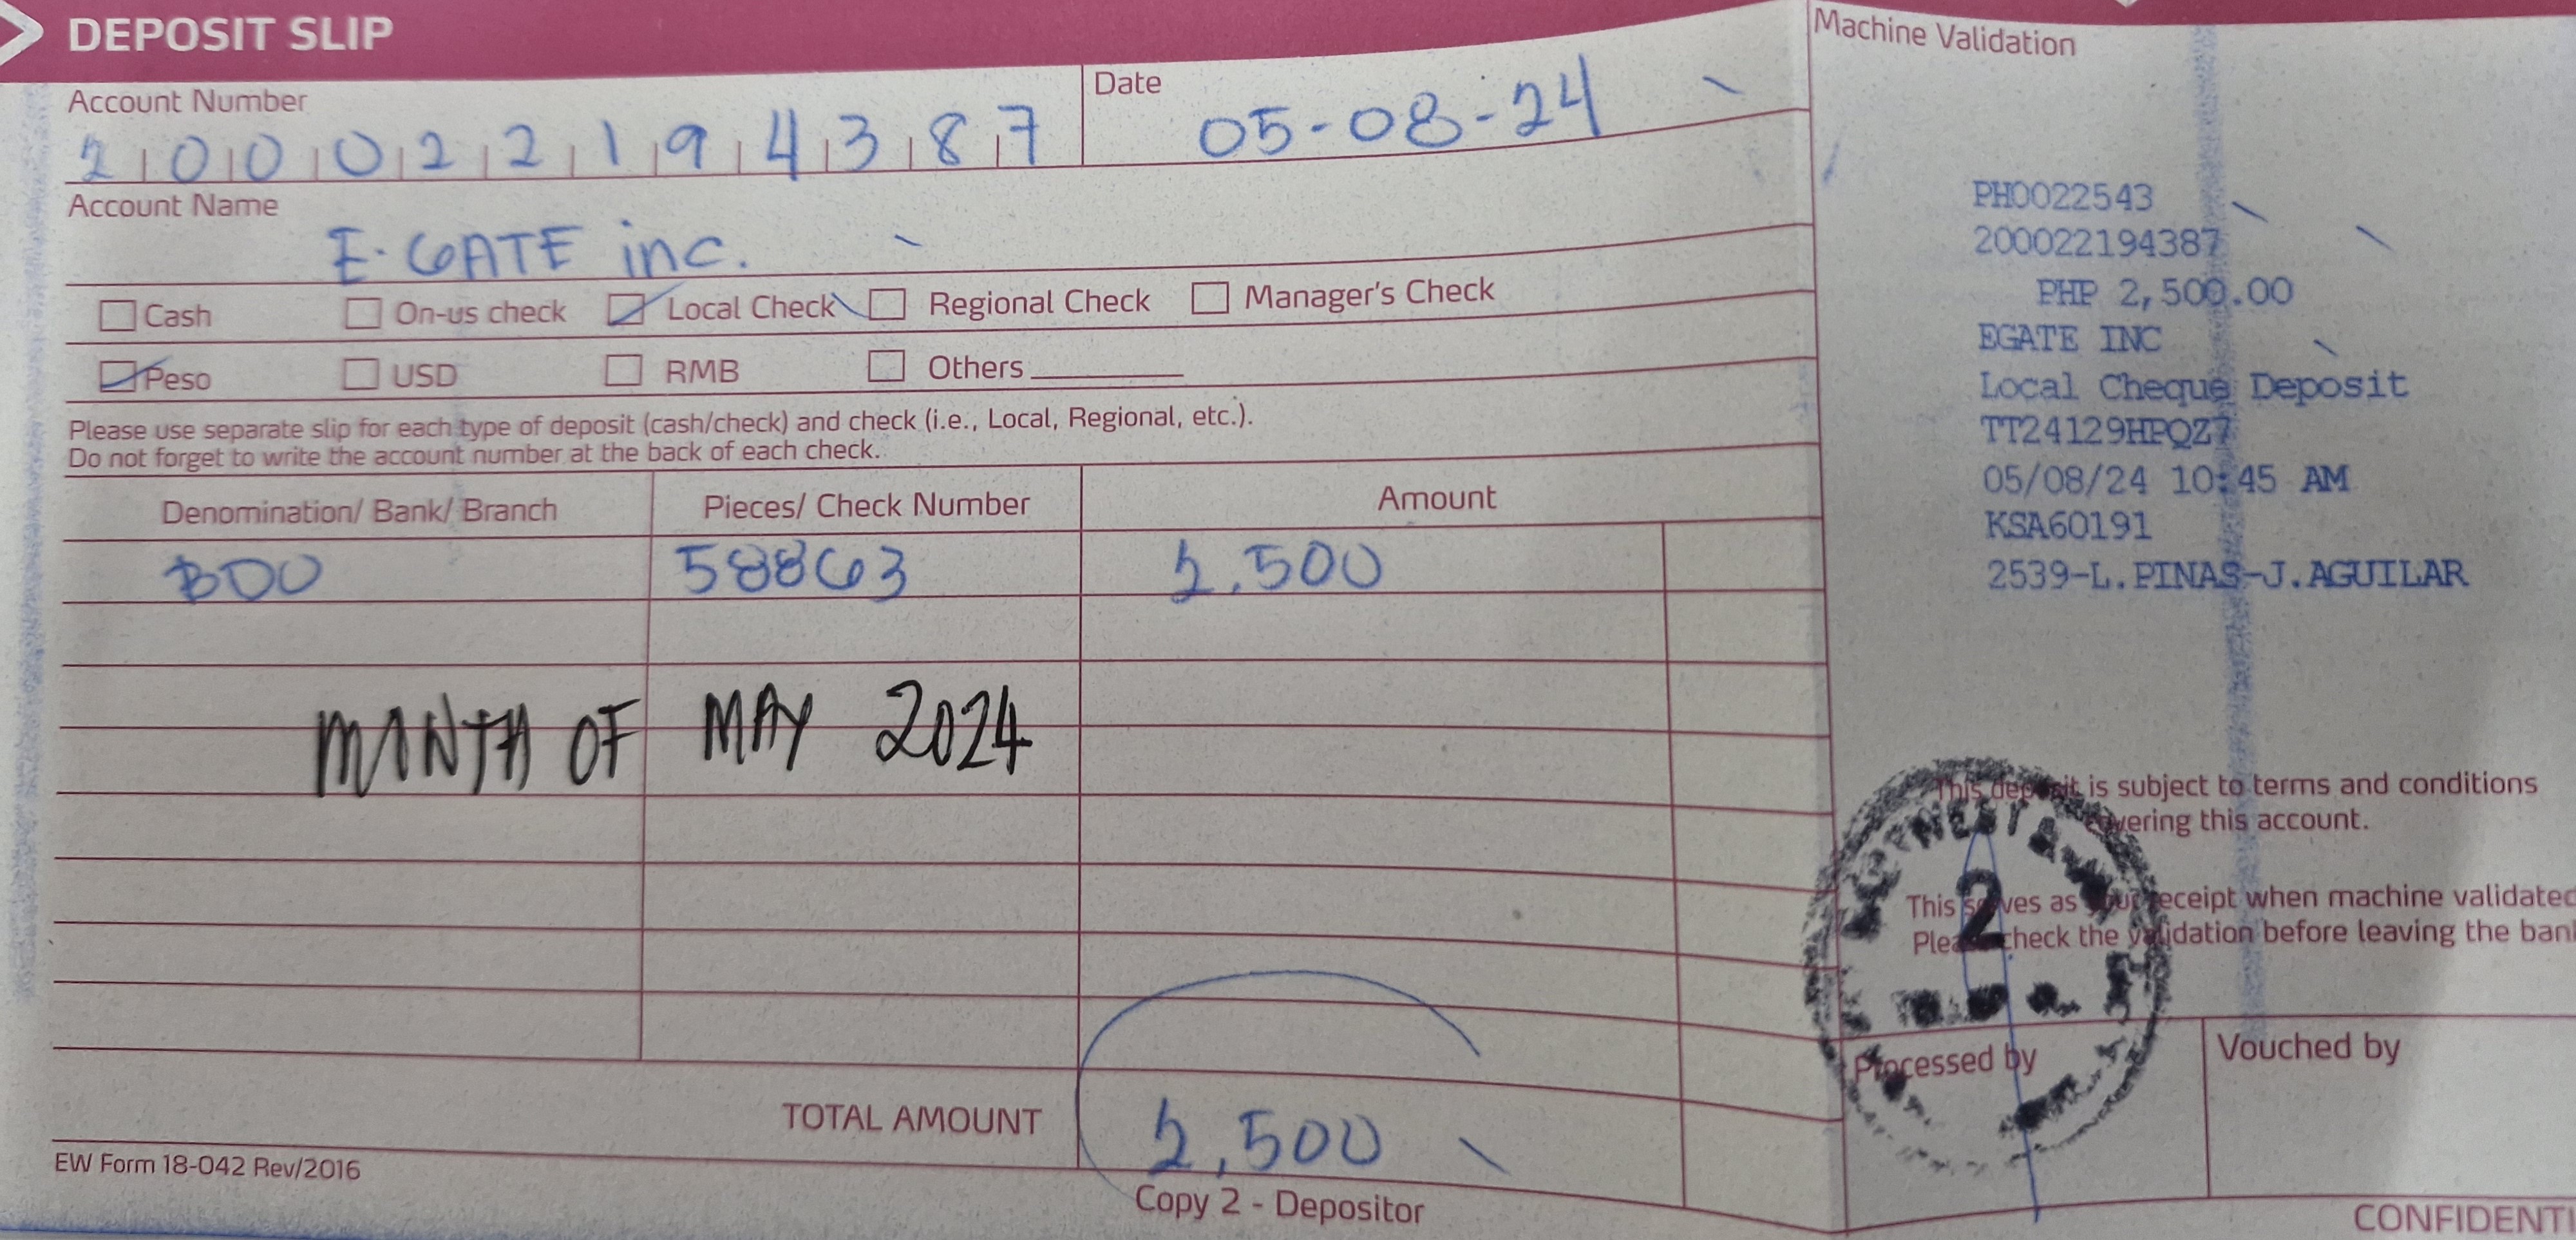 DEPOSIT SLIP
Account Number
200022194387
Date
05-08-24
Account Name
E-GATE inc.
Cash On-us check Local Check Regional Check Manager's Check
Peso USD RMB Others
Please use separate slip for each type of deposit (cash/check) and check (i.e., Local, Regional, etc.).
Do not forget to write the account number at the back of each check.
Denomination/ Bank/ Branch Pieces/ Check Number Amount
BDO 58863 2,500
MONTH OF MAY 2024
TOTAL AMOUNT 2,500
EW Form 18-042 Rev/2016
Copy 2 - Depositor
Machine Validation
PH0022543
200022194387
PHP 2,500.00
EGATE INC
Local Cheque Deposit
TT24129HPQZ7
05/08/24 10:45 AM
KSA60191
2539-L.PINAS-J.AGUILAR
This deposit is subject to terms and conditions
covering this account.
This serves as your receipt when machine validated
Please check the validation before leaving the bank
2
Processed by
Vouched by
CONFIDENTI